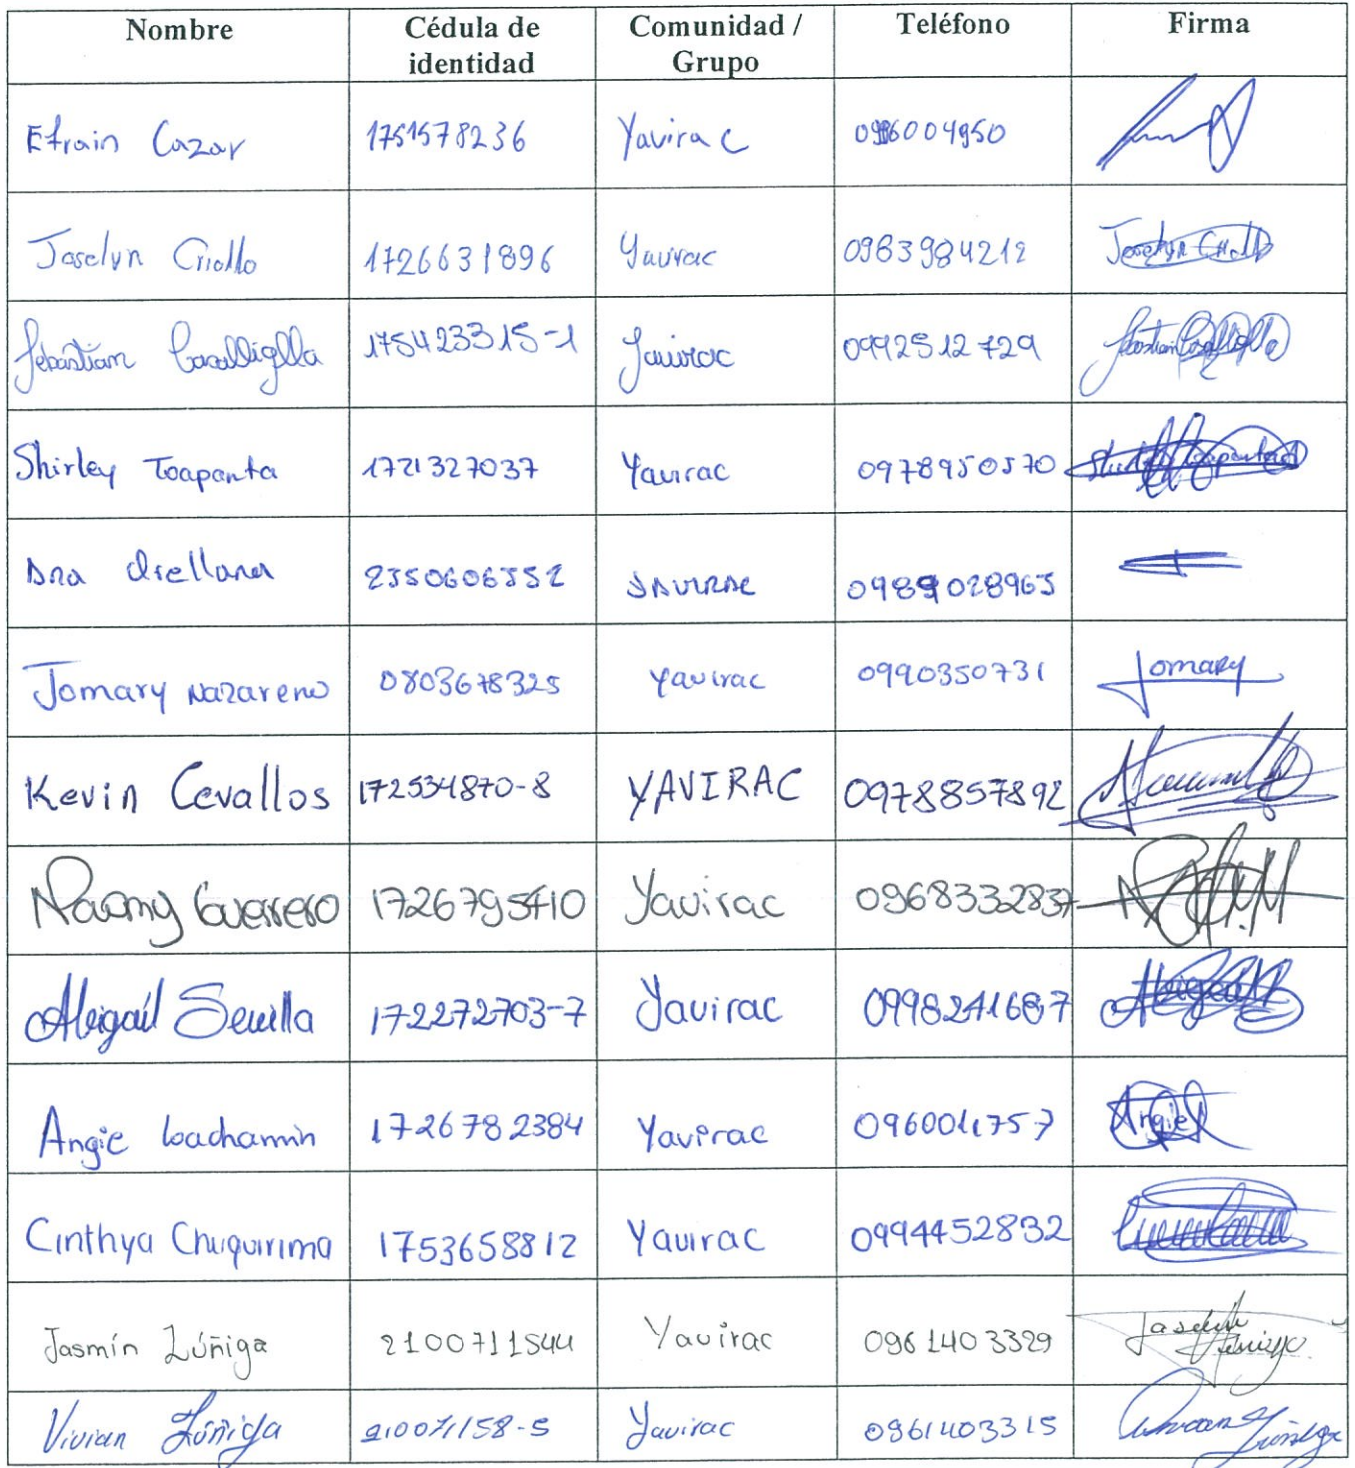 Nombre Cédula de identidad Comunidad / Grupo Teléfono Firma
Efrain Cazar 1751578236 Yavirac 0986004950
Joselyn Criollo 1726631896 Yavirac 0983984212 Joselyn Criollo
Sebastian 175423315-1 Yavirac 0992512729
Shirley Toapanta 1721327037 Yavirac 0978950570 Toapanta
Ana Orellana 2350606552 YAVIRAC 0989028963
Jomary Nazareno 0803678325 Yavirac 0990350731 Jomary
Kevin Cevallos 172534870-8 YAVIRAC 0978857892
Guerrero 1726795410 Yavirac 0968332837
Abigail Sevilla 172272703-7 Yavirac 0998241687 Abigail
Angie Loachamin 1726782384 Yavirac Angie
Cinthya Chuquirima 1753658812 Yavirac 0994452832
Jasmín Zúñiga 2100711544 Yavirac 0961403329
Vivian Zúñiga Yavirac 0961403315 Vivian Zúñiga